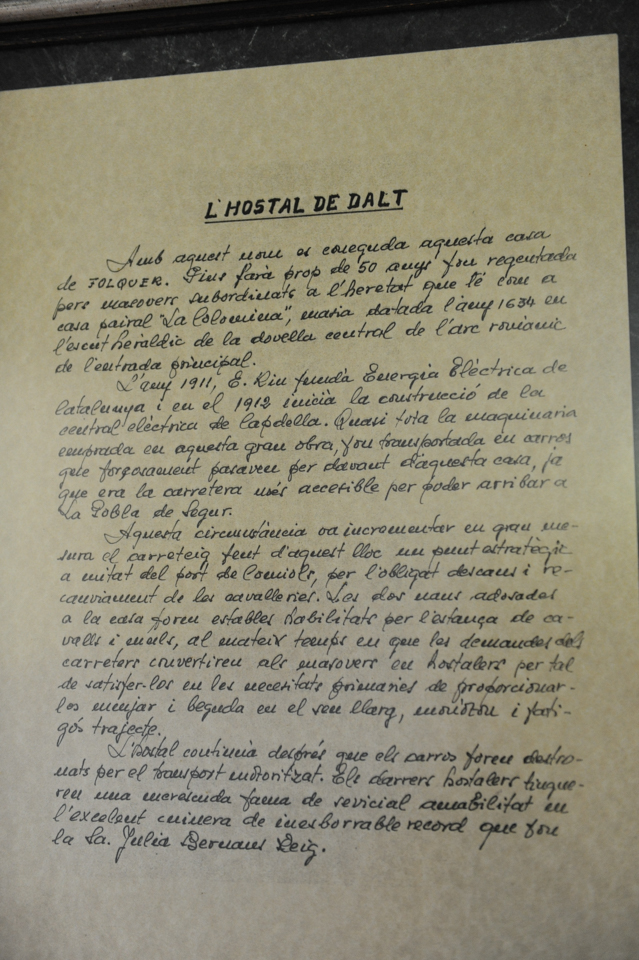 L'HOSTAL DE DALT
Amb aquest nom es coneguda aquesta casa
de FOLQUER. Fins farà prop de 50 anys fou regentada
pers masovers subordinats a l'heretat que té com a
casa pairal "La Colomina", masia datada l'any 1634 en
l'escut heràldic de la dovella central de l'arc romànic
de l'entrada principal.
L'any 1911, E. Riu fundà Energia Elèctrica de
Catalunya i en el 1912 inicià la construcció de la
central elèctrica de Capdella. Quasi tota la maquinaria
emprada en aquesta gran obra, fou transportada en carros
que forçosament pasaven per davant d'aquesta casa, ja
que era la carretera més accesible per poder arribar a
La Pobla de Segur.
Aquesta circunstància va incrementar en gran me-
sura el carreteig fent d'aquest lloc un punt estratègic
a mitat del port de Comiols, per l'obligat descans i re-
canviament de les cavalleries. Les dos naus adosades
a la casa foren estables habilitats per l'estança de ca-
valls i muls, al mateix temps en que les demandes dels
carreters convertiren als masovers en hostalers per tal
de satisfer-los en les necesitats primaries de proporcionar-
los menjar i beguda en el seu llarg, monòton i fati-
gós trajecte.
L'Hostal continuà després que els carros foren destro-
nats per el transport motoritzat. Els darrers hostalers tingue-
ren una merescuda fama de servicial amabilitat en
l'excelent cuinera de inesborrable record que fou
la Sa. Julia Bernaus